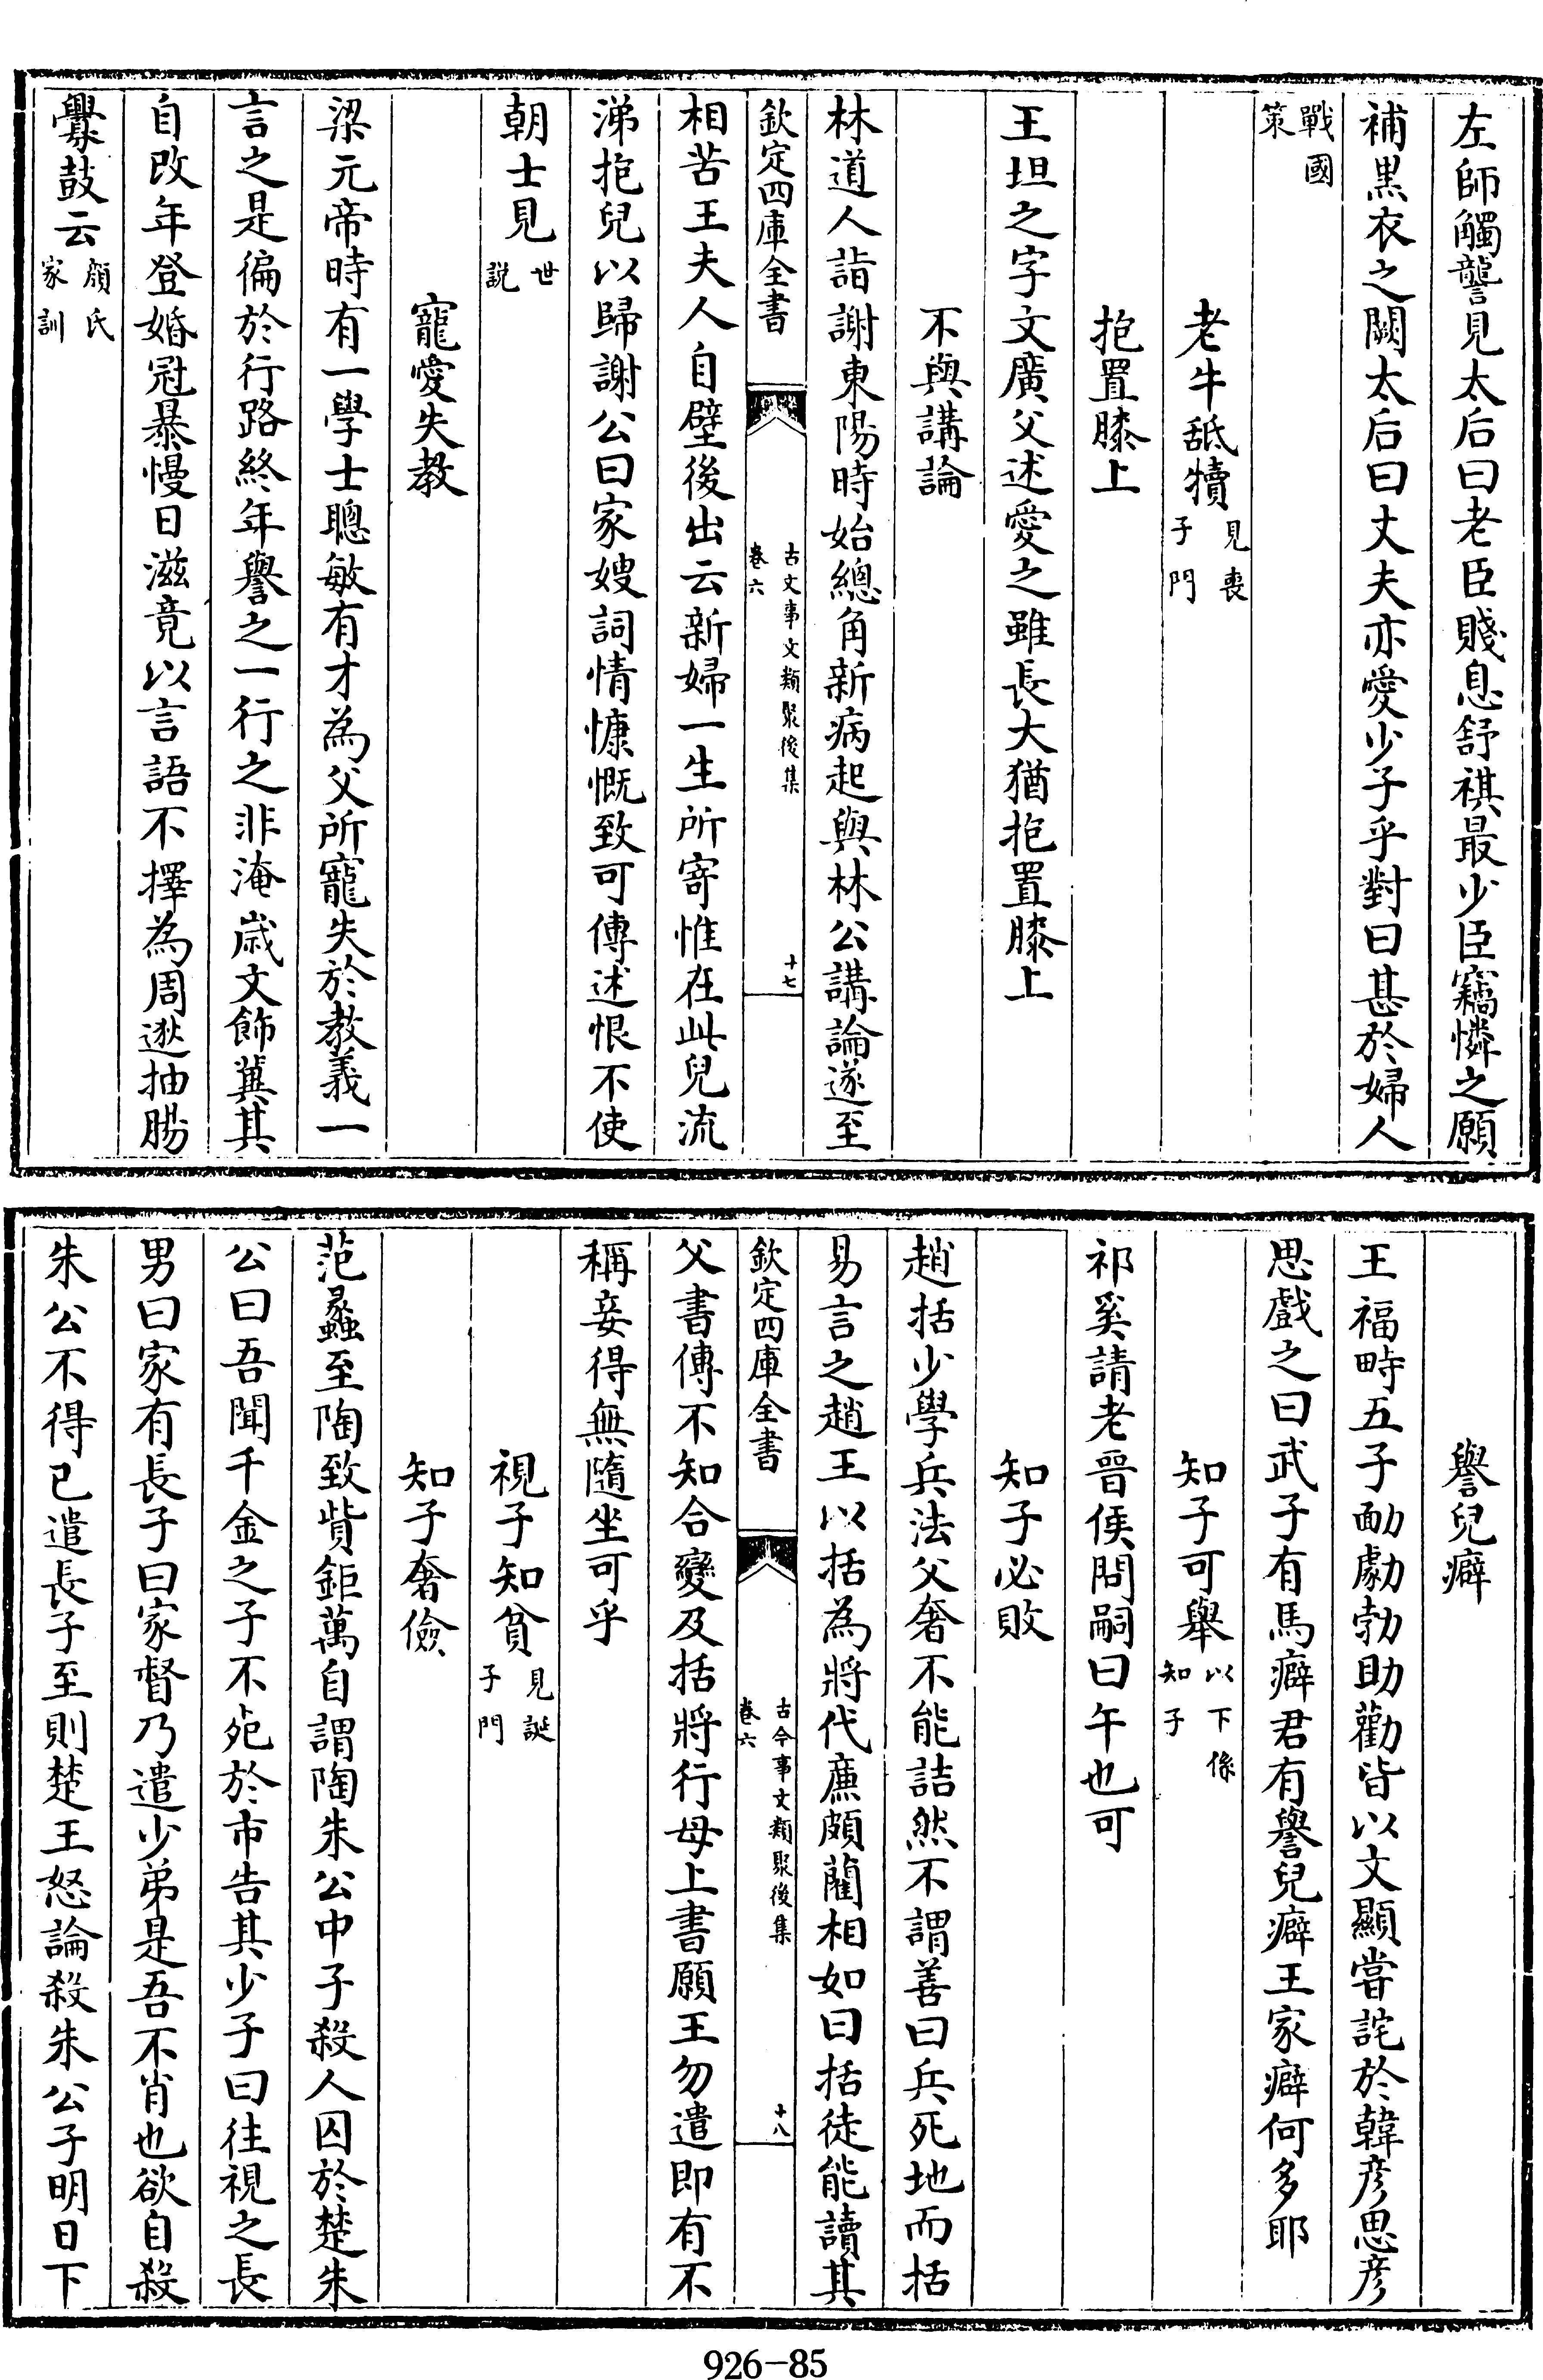 左師觸讋見太后曰老臣賤息舒祺最少臣竊憐之願
補黒衣之闕太后曰丈夫亦愛少子乎對曰甚於婦人
戰國
策
老牛舐犢見喪
子門
抱置膝上
王坦之字文廣父述愛之雖長大猶抱置膝上
不與講論
林道人詣謝東陽時始總角新病起與林公講論遂至
欽定四庫全書
古文事文類聚後集
卷六
十七
相苦王夫人自壁後出云新婦一生所寄惟在此兒流
涕抱兒以歸謝公曰家嫂詞情慷慨致可傳述恨不使
朝士見世
説
寵愛失教
梁元帝時有一學士聰敏有才為父所寵失於教義一
言之是徧於行路終年譽之一行之非淹歲文飾冀其
自改年登婚冠暴慢日滋竟以言語不擇為周逖抽腸
釁鼓云顔氏
家訓
譽兒癖
王福畤五子勔勮勃助勸皆以文顯嘗詫於韓彦思彦
思戲之曰武子有馬癖君有譽兒癖王家癖何多耶
知子可舉以下係
知子
祁奚請老晉侯問嗣曰午也可
知子必敗
趙括少學兵法父奢不能詰然不謂善曰兵死地而括
易言之趙王以括為將代廉頗藺相如曰括徒能讀其
欽定四庫全書
古今事文類聚後集
卷六
十八
父書傳不知合變及括將行母上書願王勿遣即有不
稱妾得無隨坐可乎
視子知貧見誕
子門
知子奢儉
范蠡至陶致貲鉅萬自謂陶朱公中子殺人囚於楚朱
公曰吾聞千金之子不死於市告其少子曰往視之長
男曰家有長子曰家督乃遣少弟是吾不肖也欲自殺
朱公不得已遣長子至則楚王怒論殺朱公子明日下
926-85